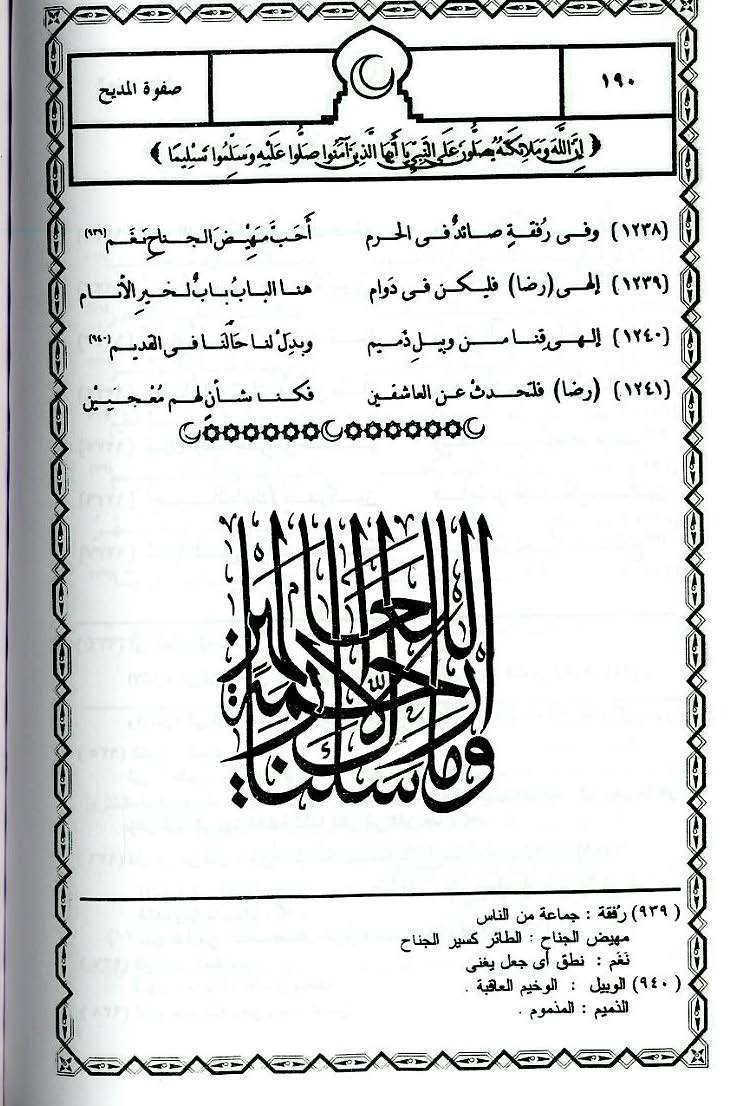 ١٩٠
صفوة المديح
﴿ إِنَّ اللَّهَ وَمَلَائِكَتَهُ يُصَلُّونَ عَلَى النَّبِيِّ يَا أَيُّهَا الَّذِينَ آمَنُوا صَلُّوا عَلَيْهِ وَسَلِّمُوا تَسْلِيمًا ﴾
(١٢٣٨) وفى رُفقةٍ صائدٌ فى الحرم أَحَبَّ مَهِيْضَ الجناحِ نَغَم (٩٣٩)
(١٢٣٩) إلهى (رضا) فليكن فى دَوام هنا البابُ بابٌ لخيرِ الأنام
(١٢٤٠) إلهى قِنا من وبيلٍ ذَميم وبدِلْ لنا حَالَنا فى القديم (٩٤٠)
(١٢٤١) (رضا) فلتحدثْ عن العاشقين فكنا شأنٍ لهم مُعْجبَيْن
وما أرسلناك إلا رحمة للعالمين
(٩٣٩) رُفقة : جماعة من الناس
مهيض الجناح : الطائر كسير الجناح
نَغَم : نطق أى جعل يغنى
(٩٤٠) الوبيل : الوخيم العاقبة .
الذميم : المذموم .